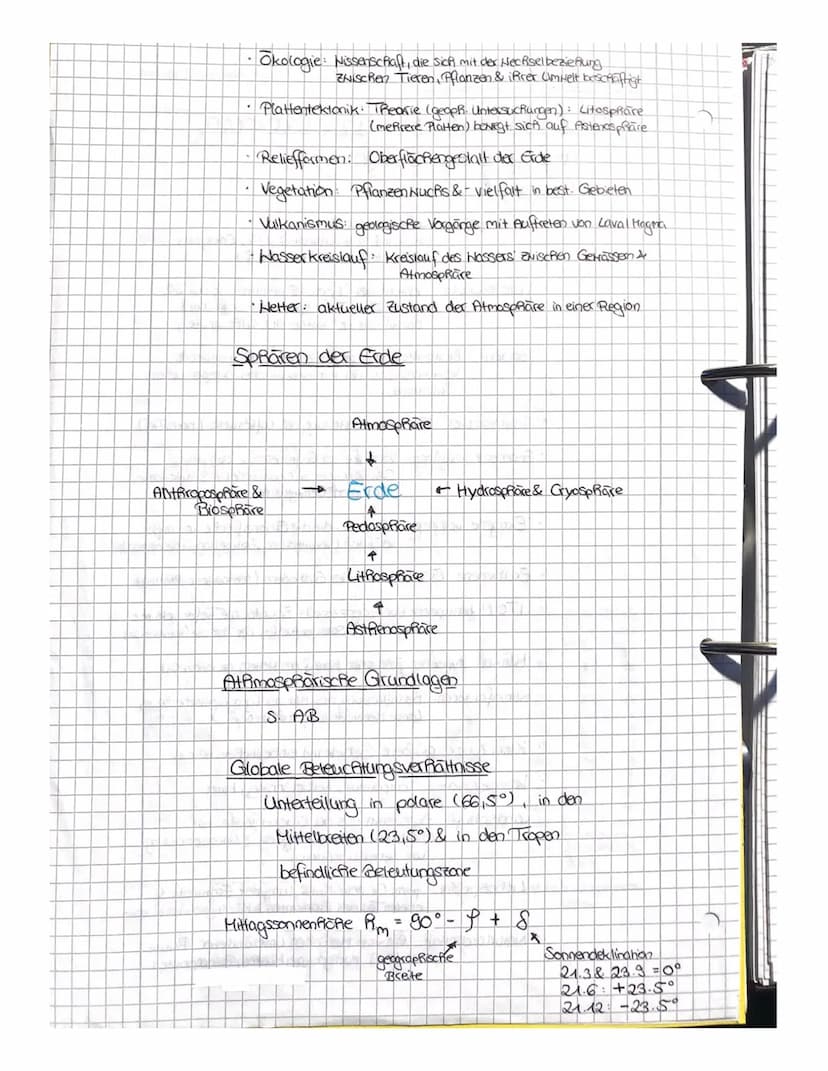 · Ökologie: Wissenschaft, die sich mit der Wechselbeziehung
zwischen Tieren, Pflanzen & ihrer Umwelt beschäftigt
· Plattentektonik: Theorie (geoph. Untersuchungen): Litosphäre
(mehrere Platten) bewegt sich auf Astenosphäre
· Reliefformen: Oberflächengestalt der Erde
· Vegetation: Pflanzenwuchs & -vielfalt in best. Gebieten
· Vulkanismus: geologische Vorgänge mit Auftreten von Lava/Magma
· Wasserkreislauf: Kreislauf des Wassers zwischen Gewässern &
Atmosphäre
· Wetter: aktueller Zustand der Atmosphäre in einer Region
Sphären der Erde
Atmosphäre
↓
Anthroposphäre & → Erde ← Hydrosphäre & Cryosphäre
Biosphäre
↑
Pedosphäre
↑
Lithosphäre
↑
Asthenosphäre
Athmosphärische Grundlagen
S. AB
Globale Beleuchtungsverhältnisse
Unterteilung in polare (66,5°), in den
Mittelbreiten (23,5°) & in den Tropen
befindliche Beleutungszone
Mittagssonnenhöhe hm = 90° - φ + δ
geographische
Breite
Sonnendeklination
21.3 & 23.9 = 0°
21.6: +23.5°
21.12: -23.5°